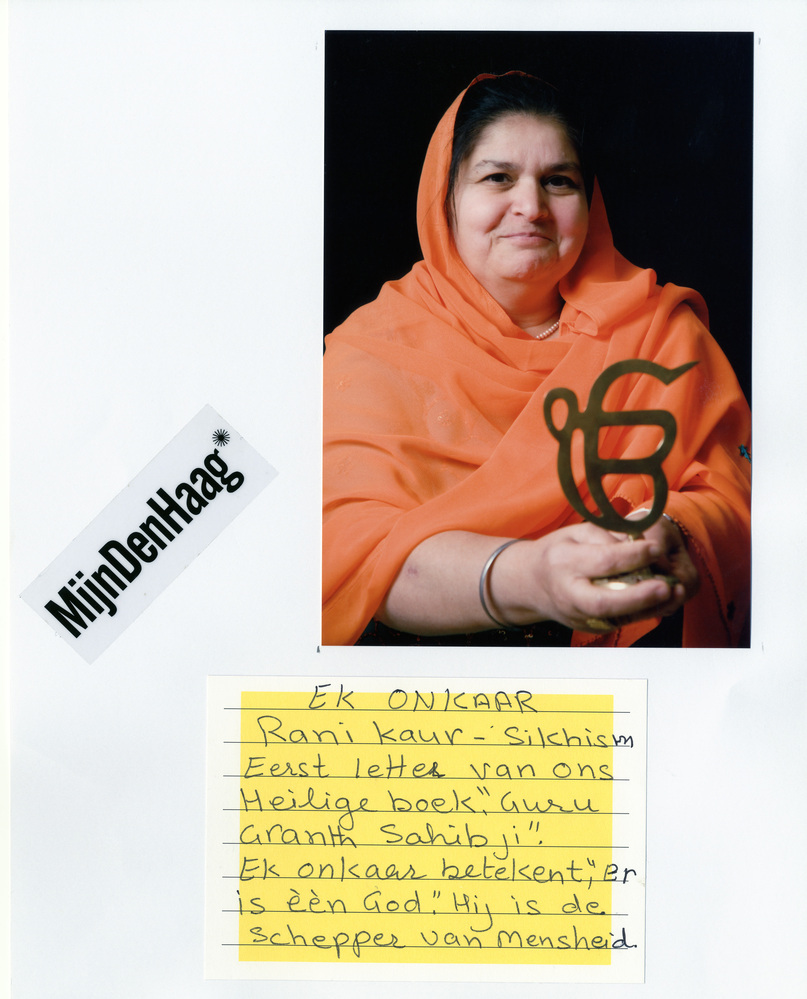 MijnDenHaag
EK ONKAAR
Rani Kaur - Sikhism
Eerst letter van ons
Heilige boek", Guru
Granth Sahib ji".
Ek onkaar betekent", Er
is èèn God." Hij is de
Schepper van Mensheid.